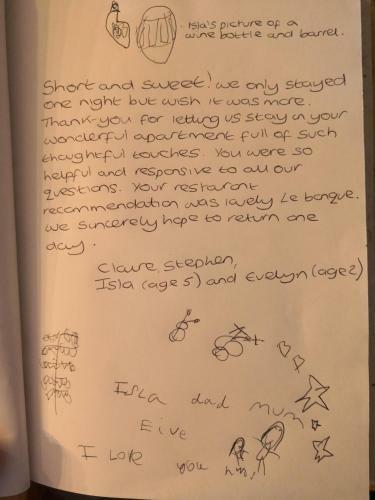 Isla's picture of a
wine bottle and barrel.
Short and sweet! we only stayed
one night but wish it was more.
Thank-you for letting us stay in your
wonderful apartment full of such
thoughtful touches. You were so
helpful and responsive to all our
questions. Your restarant
recommendation was lovely Le banque.
We sincerely hope to return one
day.
Claire, Stephen,
Isla (age 5) and Evelyn (age 2)
Isla dad mum
Eive
I Love you